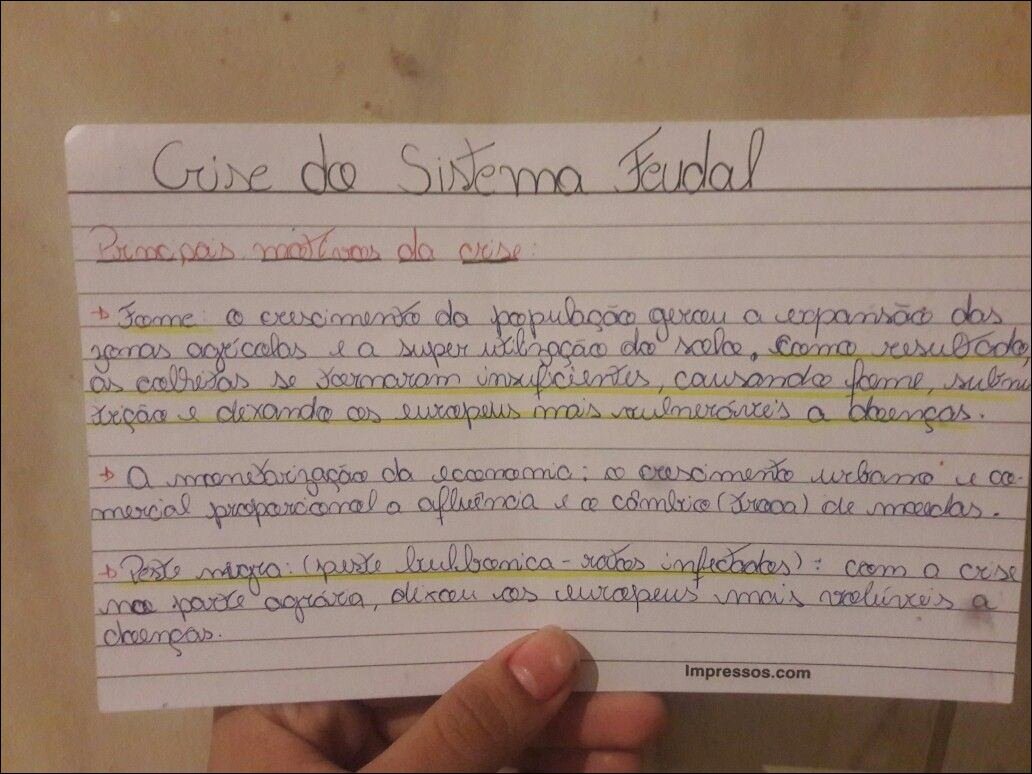 Crise do Sistema Feudal
Principais motivos da crise:
→ Fome: o crescimento da população gerou a expansão das
zonas agrícolas e a super utilização do solo, como resultado
as colheitas se tornaram insuficientes, causando fome, subnu
trição e deixando os europeus mais vulneráveis a doenças.
→ A monetarização da economia: o crescimento urbano e co-
mercial proporcional a afluência e o câmbio (troca) de moedas.
→ Peste negra: (peste bubbonica - ratos infectados): com a crise
na parte agrára, deixou os europeus mais a
doenças.
Impressos.com